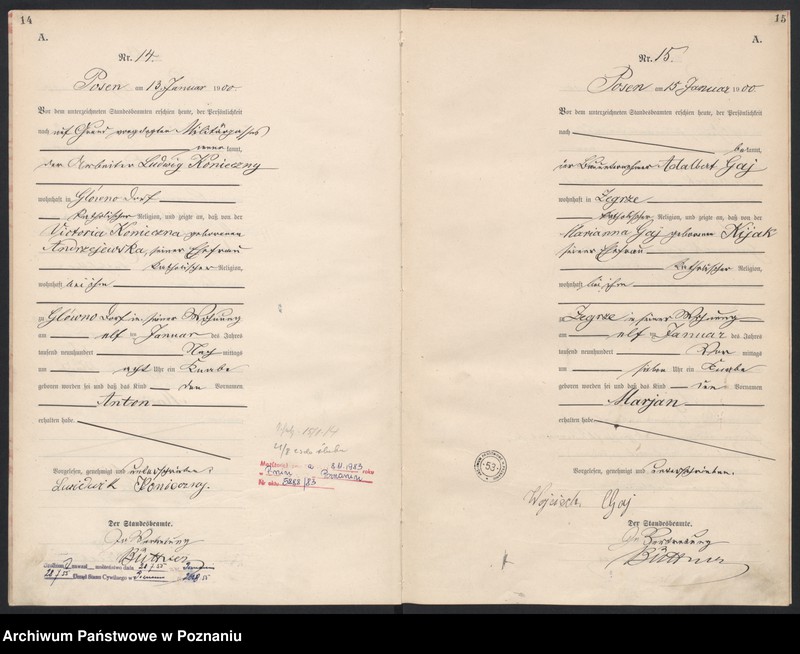 14
A.
Nr. 14.
Posen am 13 Januar 1900
Vor dem unterzeichneten Standesbeamten erschien heute, der Persönlichkeit
nach auf Grund vorgelegten Militärpasses
kannt,
der Arbeiter Ludwig Konieczny
wohnhaft in Glówno Dorf
katholischer Religion, und zeigte an, daß von der
Victoria Konieczna geborenen
Andrzejewska, seiner Ehefrau
katholischer Religion,
wohnhaft bei ihm
zu Glówno Dorf in seiner Wohnung
am elf ten Januar des Jahres
tausend neunhundert Nach mittags
um acht Uhr ein Knabe
geboren worden sei und daß das Kind den Vornamen
Anton
erhalten habe.
Vorgelesen, genehmigt und unterschrieben
Ludwik Konieczny.
Der Standesbeamte.
In Vertretung
Büttner
8.11.1983 roku
Nr aktu 3288/83
15
A.
Nr. 15.
Posen am 15 Januar 1900
Vor dem unterzeichneten Standesbeamten erschien heute, der Persönlichkeit
nach
bekannt,
der Adalbert Gaj
wohnhaft in Zegrze
katholischer Religion, und zeigte an, daß von der
Marianna Gaj geborenen Kijak
seiner Ehefrau
katholischer Religion,
wohnhaft bei ihm
zu Zegrze in seiner Wohnung
am elf ten Januar des Jahres
tausend neunhundert Vor mittags
um sieben Uhr ein Knabe
geboren worden sei und daß das Kind den Vornamen
Marjan
erhalten habe.
Vorgelesen, genehmigt und unterschrieben.
53
Wojciech Gaj
Der Standesbeamte.
In Vertretung
Büttner
Archiwum Państwowe w Poznaniu